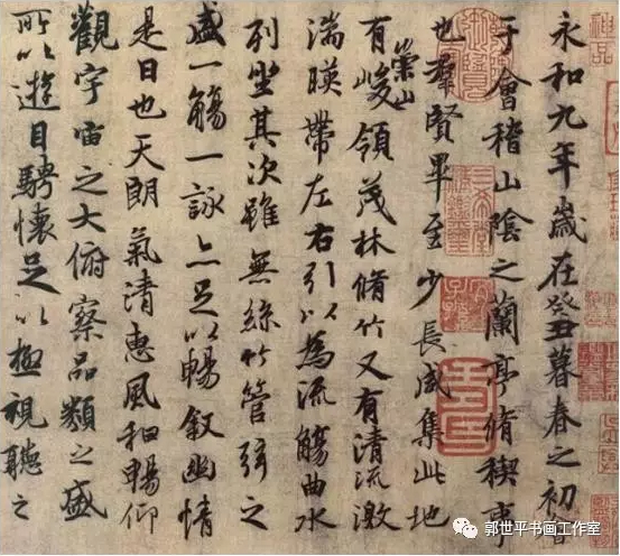 永和九年歲在癸丑暮春之初會
于會稽山陰之蘭亭脩稧事
也羣賢畢至少長咸集此地
有崇山峻領茂林脩竹又有清流激
湍暎帶左右引以為流觴曲水
列坐其次雖無絲竹管弦之
盛一觴一詠亦足以暢敘幽情
是日也天朗氣清惠風和暢仰
觀宇宙之大俯察品類之盛
所以遊目騁懷足以極視聽之
神品
郭世平书画工作室